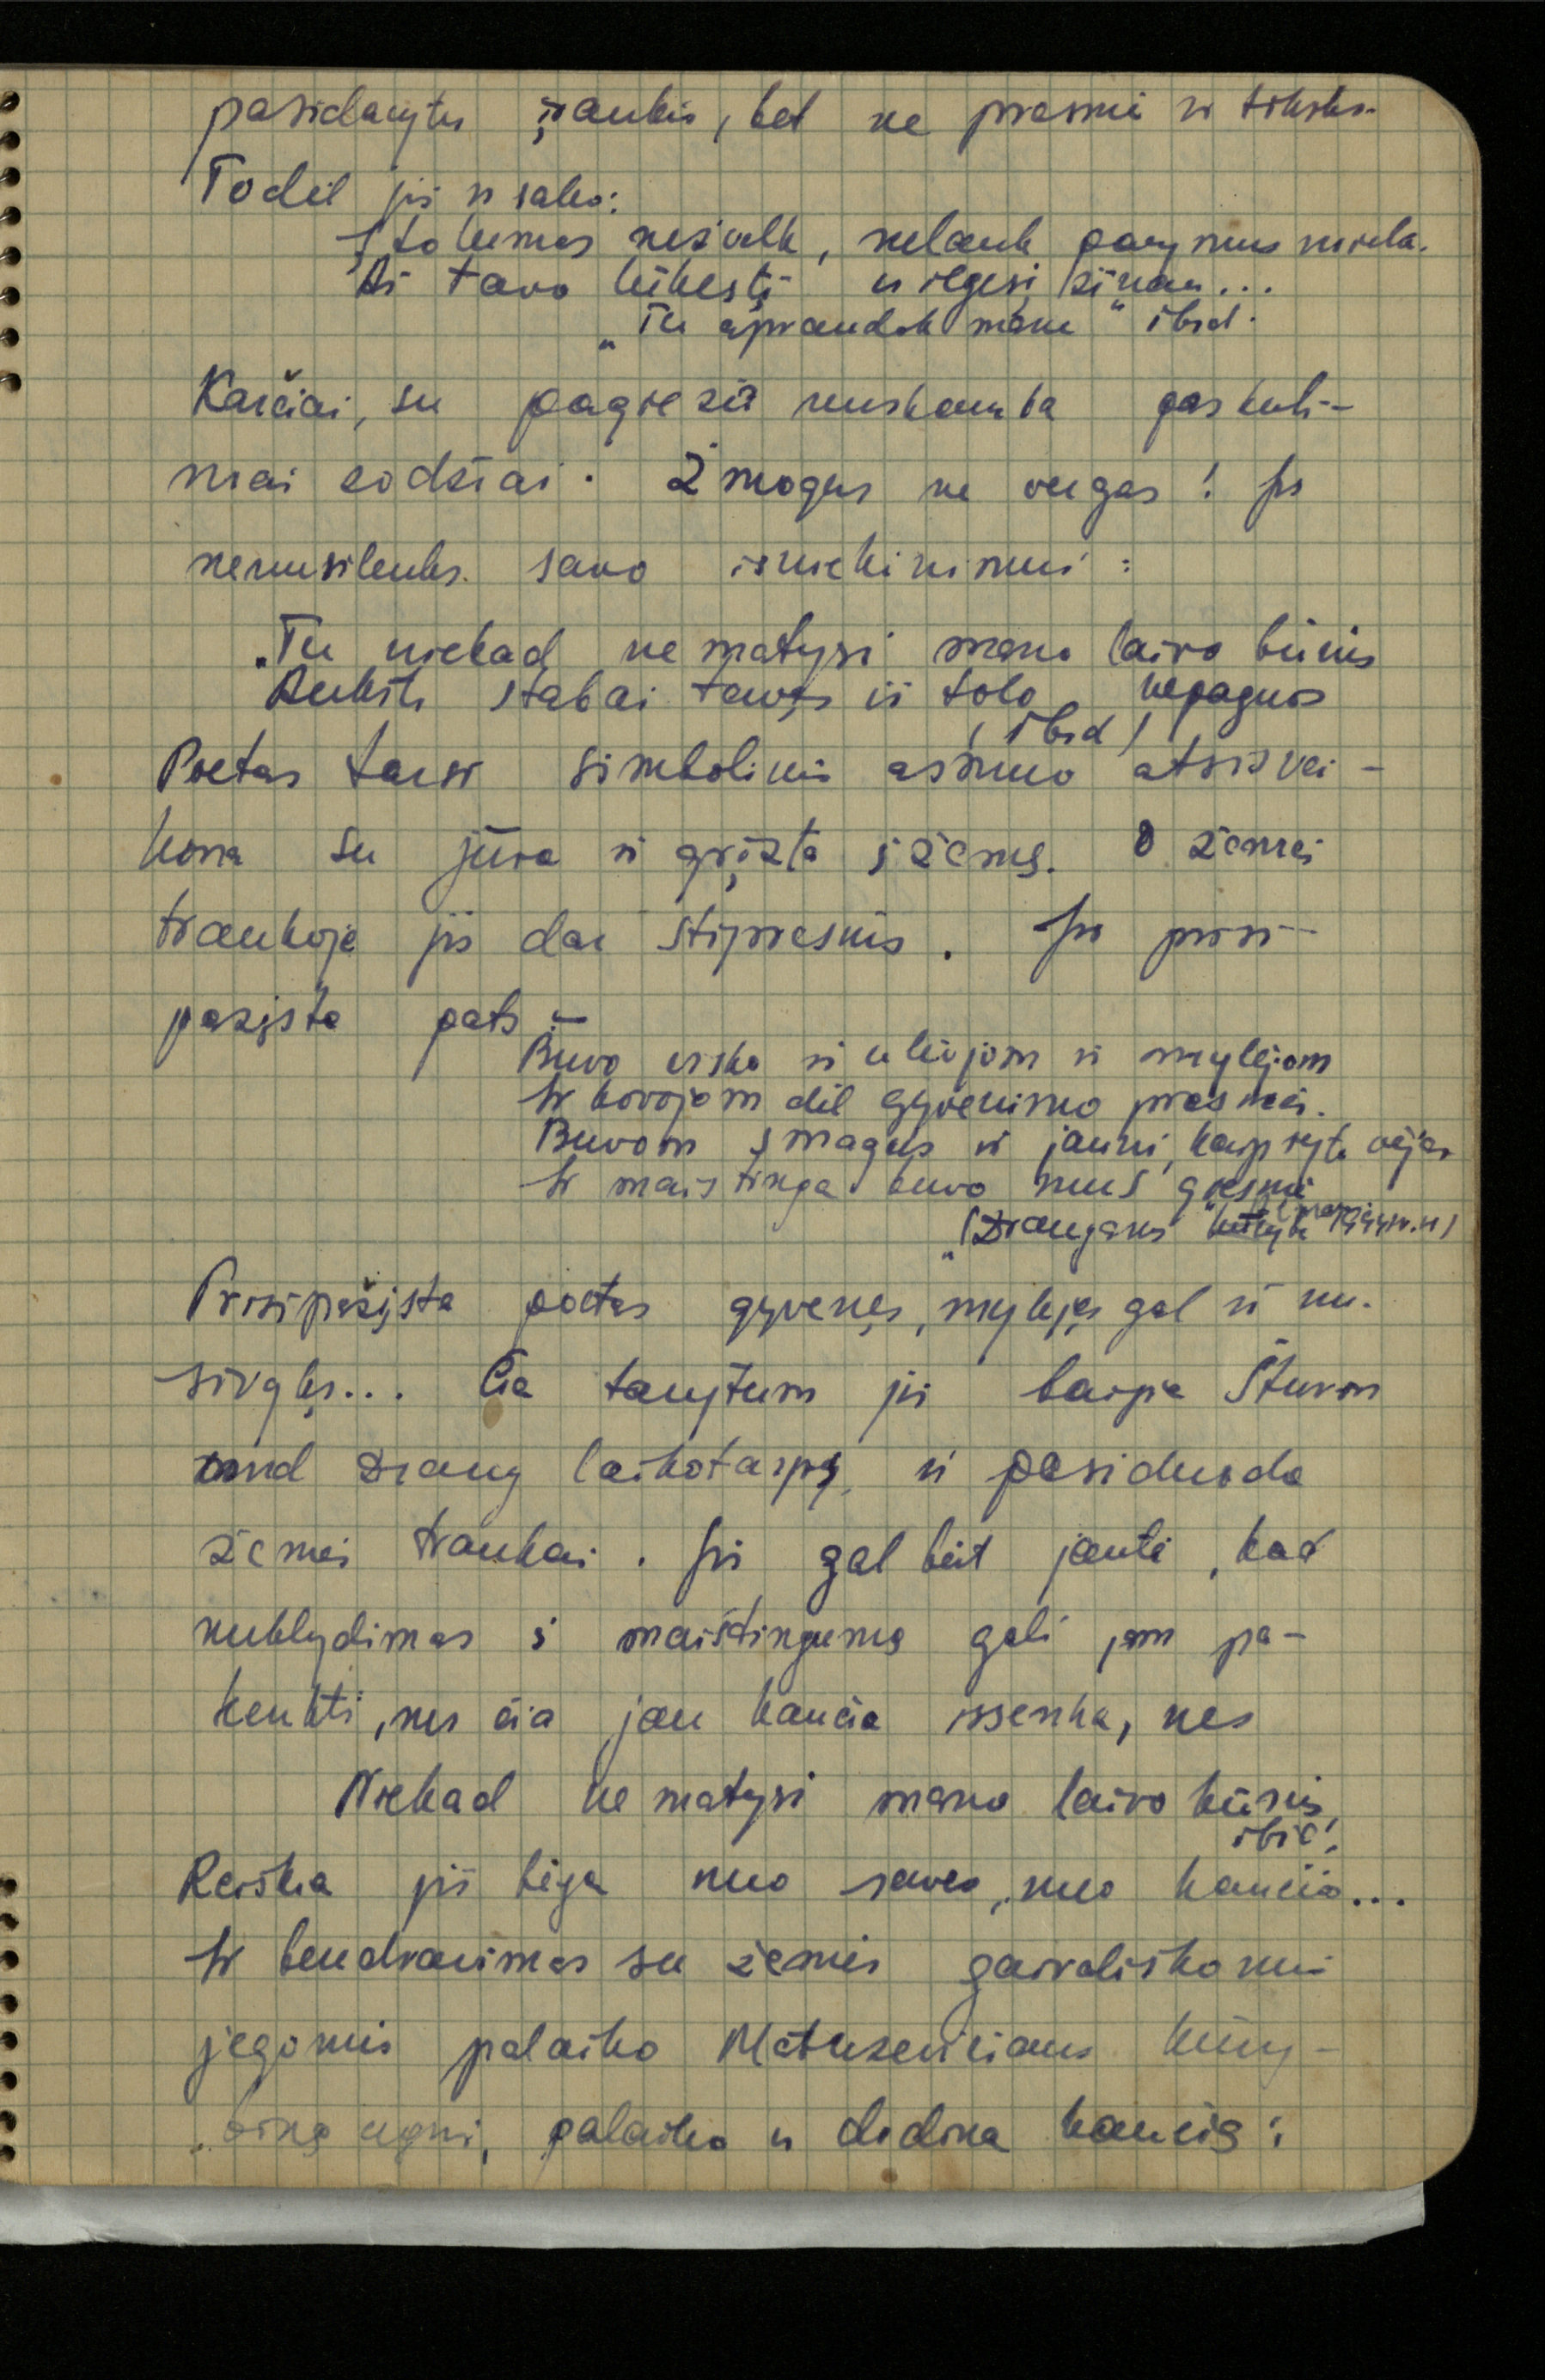 pasidarytų įrankis, bet ne prasmė ir tikslas.
Todėl jis ir sako:
Į tolumas nežvelk, nelauk parymus nieko.
Aš tavo lūkestį ir ilgesį žinau...
„Tu apraudok mane" ibid.
Karčiai, su pagieža nuskamba paskuti-
niai žodžiai. Žmogus ne vergas! Jis
nenusilenks savo išniekinimui:
„Tu niekad nematysi mano laivo būrės
Aukšti stabai tavęs iš tolo nepaguos
(ibid)
Poetas tarsi simbolinis asmuo atsisvei-
kina su jūra ir grįžta į žemę. O žemės
traukoje jis dar stipresnis. Jis prisi-
pažįsta pats:-
Buvo visko ir uliojom ir mylėjom
Ir kovojom dėl gyvenimo prasmės.
Buvom smagūs ir jauni, kaip ryto vėjas
Ir maištinga buvo mūs giesmė
(„Draugams"
Prisipažįsta poetas gyvenęs, mylėjęs gal ir nu-
sivylęs... Čia tarytum jis baigia Šturm
und Drang laikotarpį ir pasiduoda
žemės traukai. Jis galbūt jautė, kad
nuklydimas į maištingumą gali jam pa-
kenkti, nes čia jau kančia išsenka, nes
Niekad nematysi mano laivo būrės,
ibid.
Reiškia jis bėga nuo savęs, nuo kančios...
Ir bendravimas su žemės gaivališkomis
jėgomis palaiko Matuzevičiaus kūry-
binę ugnį, palaiko ir didina kančią: